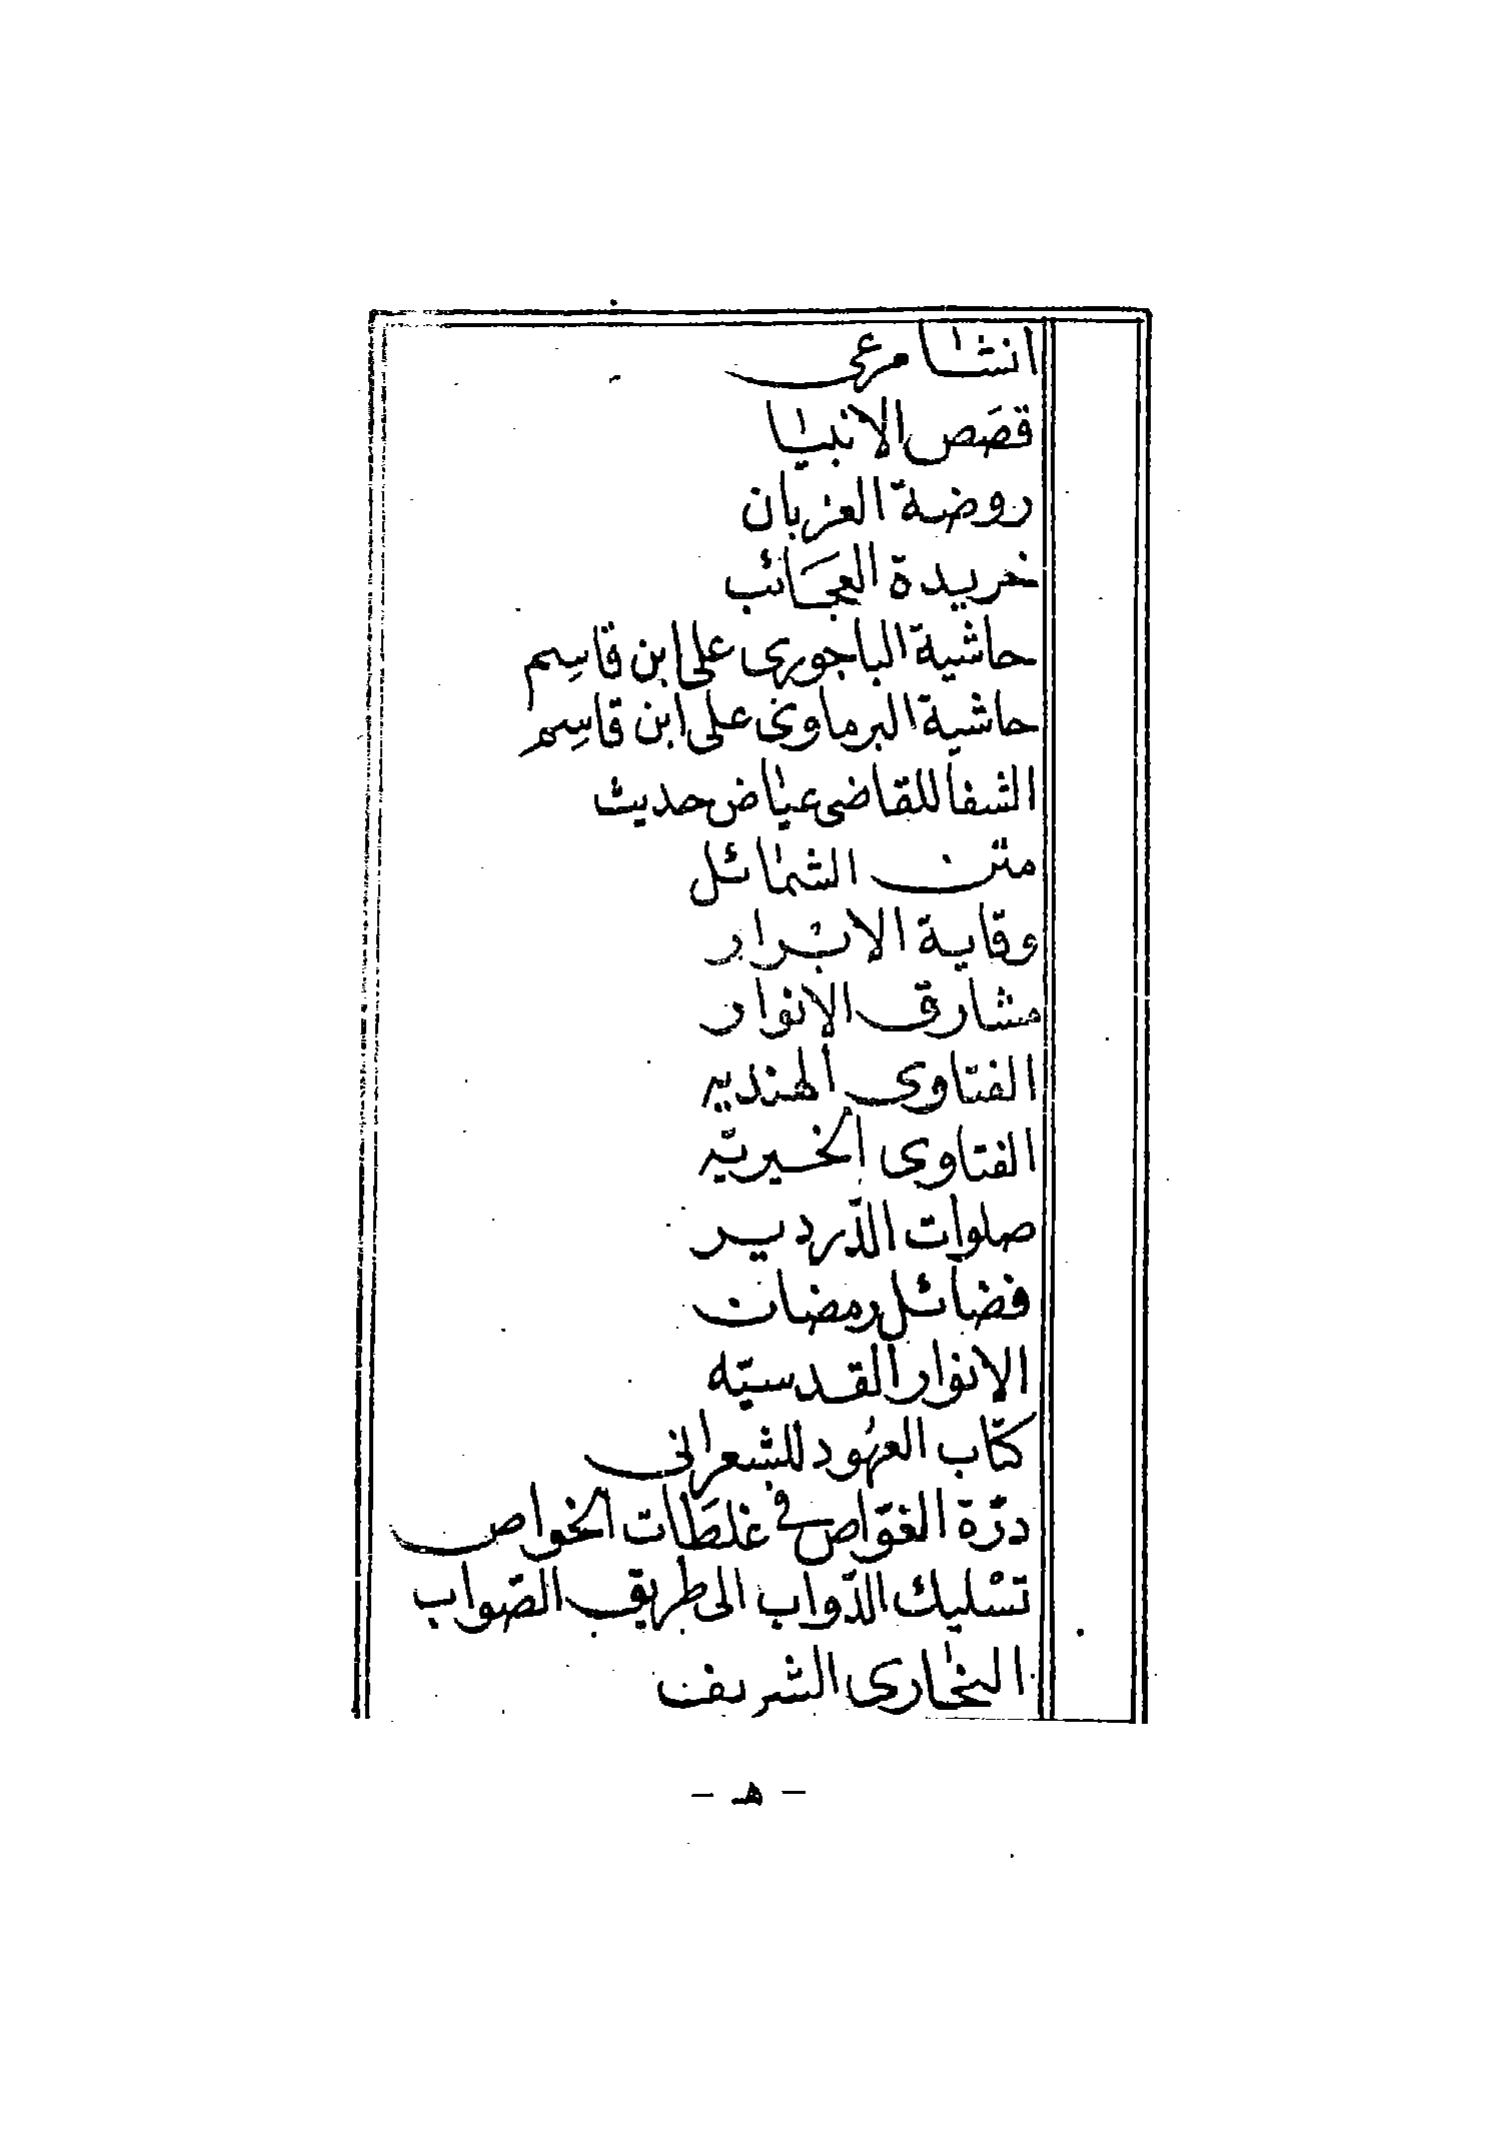 انشا مرعى
قصَص الانبيا
روضة العزبان
خريدة العجَائب
حاشية الباجورى على ابن قاسِم
حاشية البرماوى على ابن قاسِم
الشفا للقاضى عياض حديث
متن الشمائل
وقاية الابرار
مشارق الانوار
الفتاوى الهنديه
الفتاوى الخيريّه
صلوات الدّردير
فضائل رمضان
الانوار القدسيّه
كتاب العهُود للشعرانى
درّة الغوّاص فى غلطَات الخواص
تسْليك الدّواب الى طريق الصّواب
البخارى الشريف
- هـ -